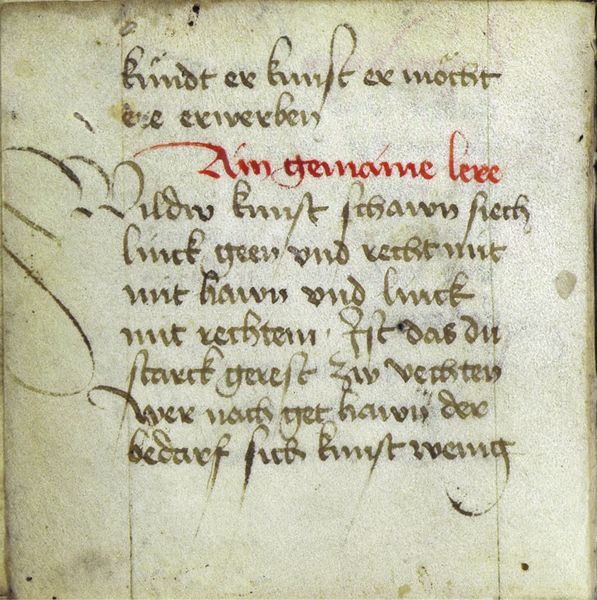 kündt er kunst er möcht
ere erwerben
Ain gemaine lere
Wildw kunst schawn siech
linck geen vnd recht mit
mit hawn vnd linck
mit rechtem · Ist das du
starck gerest zw vechten
wer noch get hawn der
bedarf sich kunst wenig